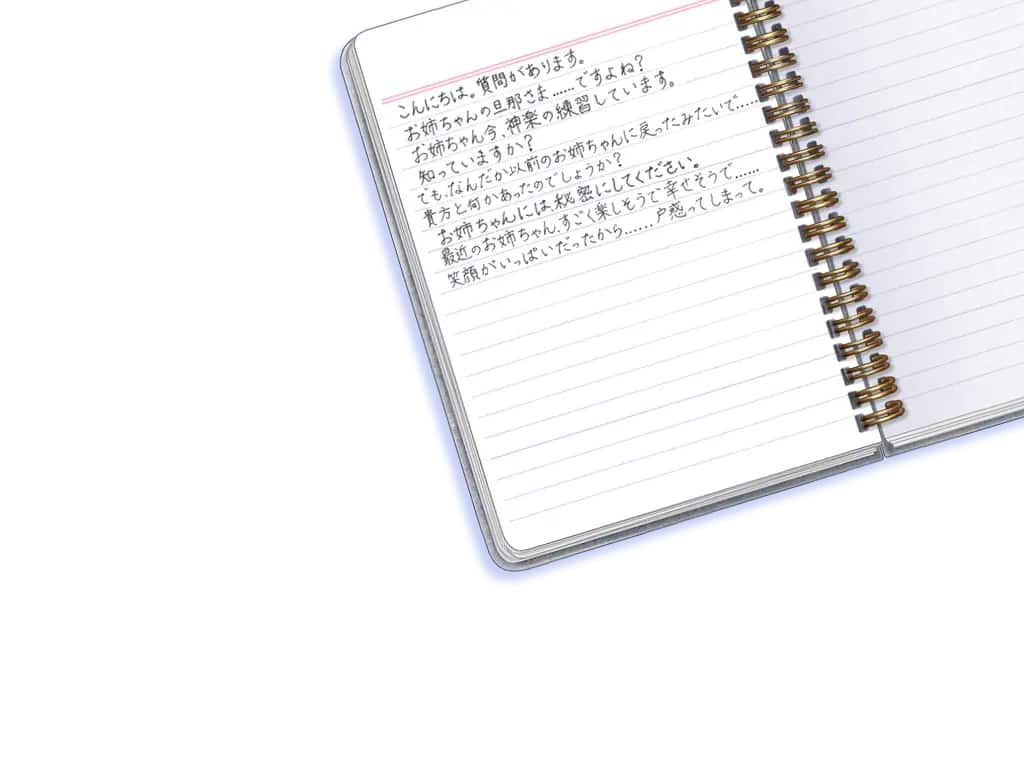 こんにちは。質問があります。
お姉ちゃんの旦那さま……ですよね？
お姉ちゃん今、神楽の練習しています。
知っていますか？
でも、なんだか以前のお姉ちゃんに戻ったみたいで……
貴方と何かあったのでしょうか？
お姉ちゃんには、秘密にしてください。
最近のお姉ちゃん、すごく楽しそうで幸せそうで……
笑顔がいっぱいだったから……戸惑ってしまって。